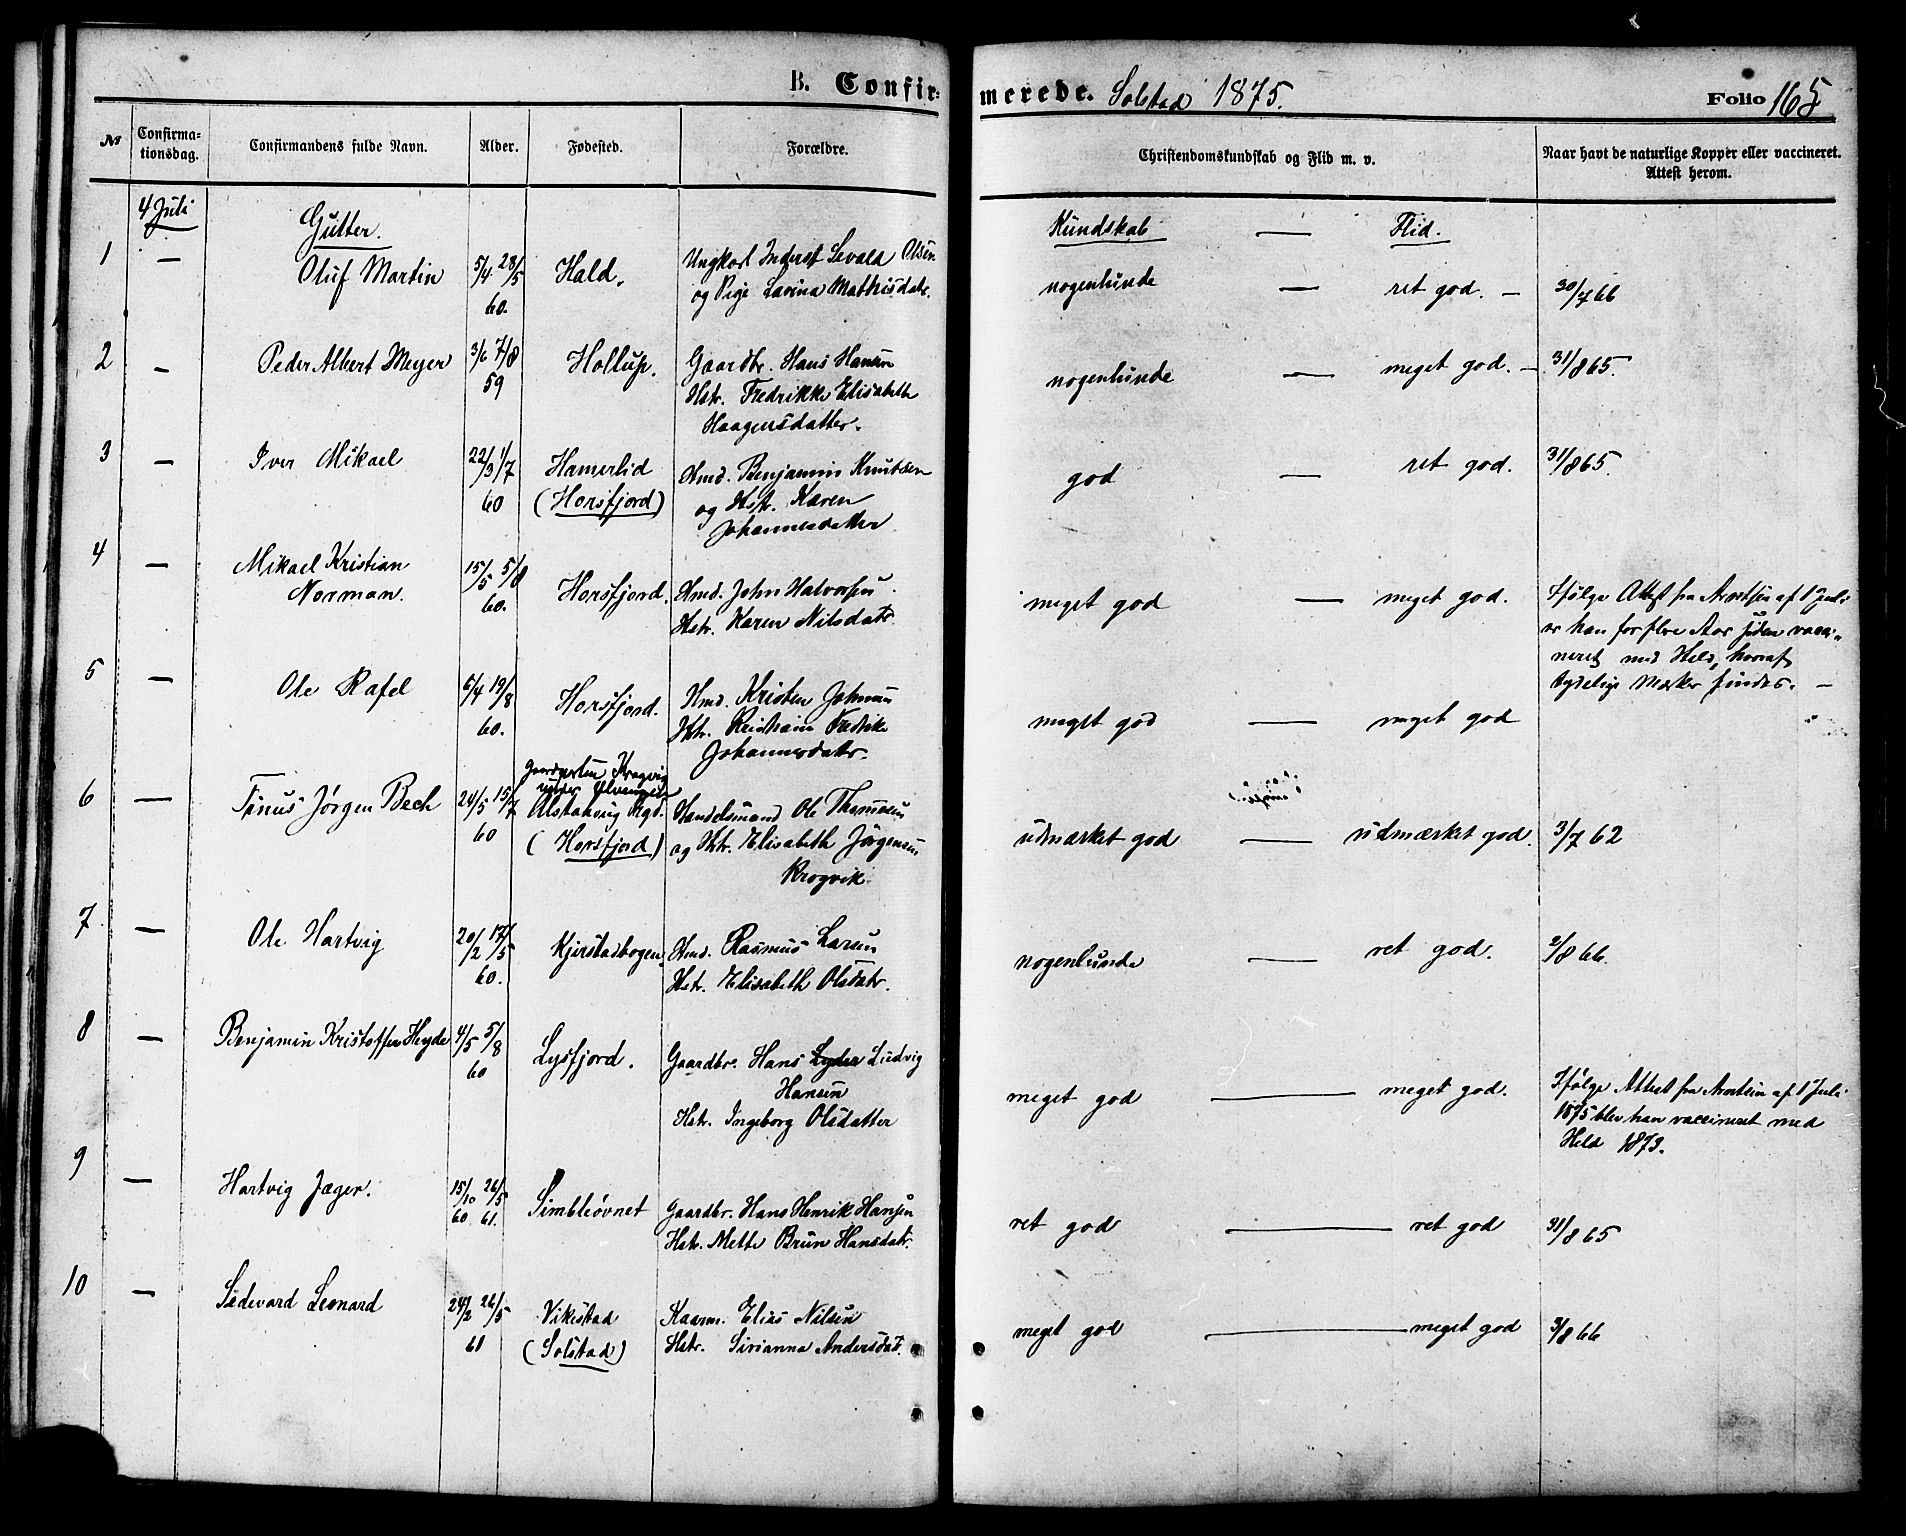 B. Confirmerede. Solstad 1875. Folio 165
№ Confirmationsdag. Confirmandens fulde Navn. Alder. Fødested. Forældre. Christendomskundskab og Flid m. v. Naar havt de naturlige Kopper eller vaccineret. Attest herom.
4 Juli
Gutter.
Kundskab — Flid.
1 — Oluf Martin 5/4 28/5 60. Hald.
Ungkarl Inderst Sevald Olsen
og Pige Lavina Mathisdatr.
nogenlunde — ret god. — 30/7 66
2 — Peder Albert Meyer 3/6 7/8 59 Hollup.
Gaardbr. Hans Hansen
Hstr. Fredrikke Elisabeth
Haagensdatter.
nogenlunde — meget god. — 31/8 65.
3 — Iver Mikael 22/3 1/7 60 Hamerlid
(Horsfjord)
Hmd. Benjamin Knutsen
og Hstr. Karen
Johannesdatter
god — ret god. 31/8 65.
4 — Mikael Kristian
Norman. 15/5 5/8 60. Horsfjord.
Hmd. John Halvorsen
Hstr. Karen Nilsdatr.
meget god — meget god.
Ifølge Attest fra Arentsen af 1 Juli
er han for flere Aar siden vacci-
neret med Held, hvoraf
tydelige Mærker findes. —
5 — Ole Rafel 6/4 19/8 60. Horsfjord.
Hmd. Kristen Johnsen
Hstr. Kristiane Fredrike
Johannesdatr.
meget god — meget god "
6 — Tinus Jørgen Bech 24/5 15/7 60
Alstahaug Prgd.
(Horsfjord)
Handelsmand Ole Thomesen
og Hstr. Elisabeth Jørgensen
Krogvik
udmærket god — udmærket god. 3/7 62
7 — Ole Hartvig 20/2 17/5 60. Kjerstadbogen.
Hmd. Rasmus Larsen
Hstr. Elisabeth Olsdatr.
nogenlunde — ret god. 2/8 66.
8 — Benjamin Kristoffer Heyde 4/5 5/8 60 Lysfjord.
Gaardbr. Hans Lyder Ludvig
Hansen
Hstr. Ingeborg Olsdatter
meget god — meget god.
Ifølge Attest fra Arentsen af 1 Juli
1875 blev han vaccineret med
Held 1873.
9 — Hartvig Jæger. 15/10 60 26/5 61. Simbleøvnet
Gaardbr. Hans Henrik Hansen
Hstr. Mette Brun Hansdatr.
ret god — ret god 31/8 65
10 — Sedevard Leonard 24/2 26/5 61 Vikestad
(Solstad)
Kaarm. Elias Nilsen
Hstr. Sirianna Andersdat.
meget god — meget god 3/8 66